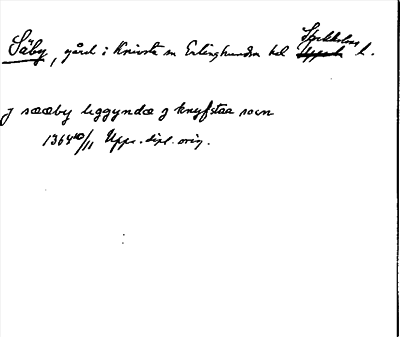 Säby, gård i Knivsta sn Erlinghundra hd Stockholms l.
j sææby liggyndæ j knyfstaa socn
1365 10/11 Upps. dipl. orig.